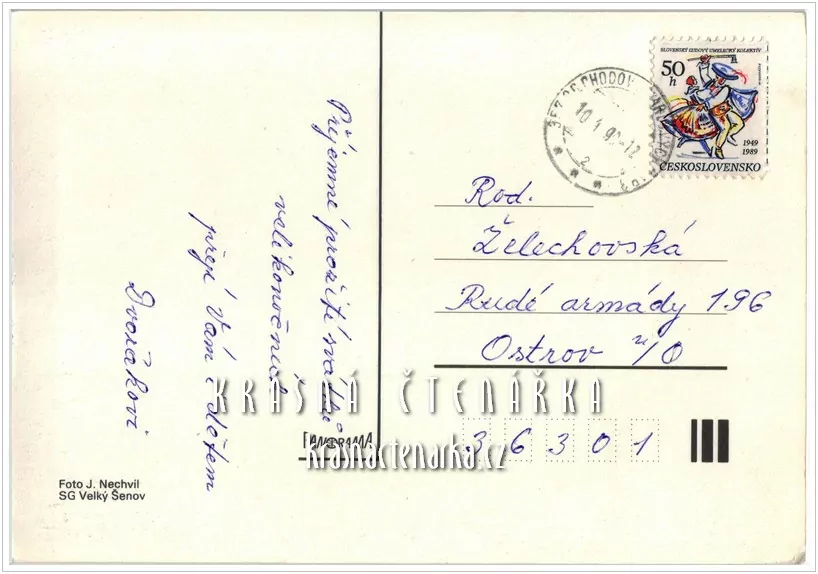 Příjemné prožití svátků
velikonočních
přejí Vám i dětem
Dvořákovi
Foto J. Nechvíl
SG Velký Šenov
PANORAMA
SLOVENSKÝ ĽUDOVÝ UMELECKÝ KOLEKTÍV
50
h
1949
1989
ČESKOSLOVENSKO
Rod.
Želechovská
Rudé armády 196
Ostrov n/O
36301
KRÁSNÁ ČTENÁŘKA
krasnactenarka.cz